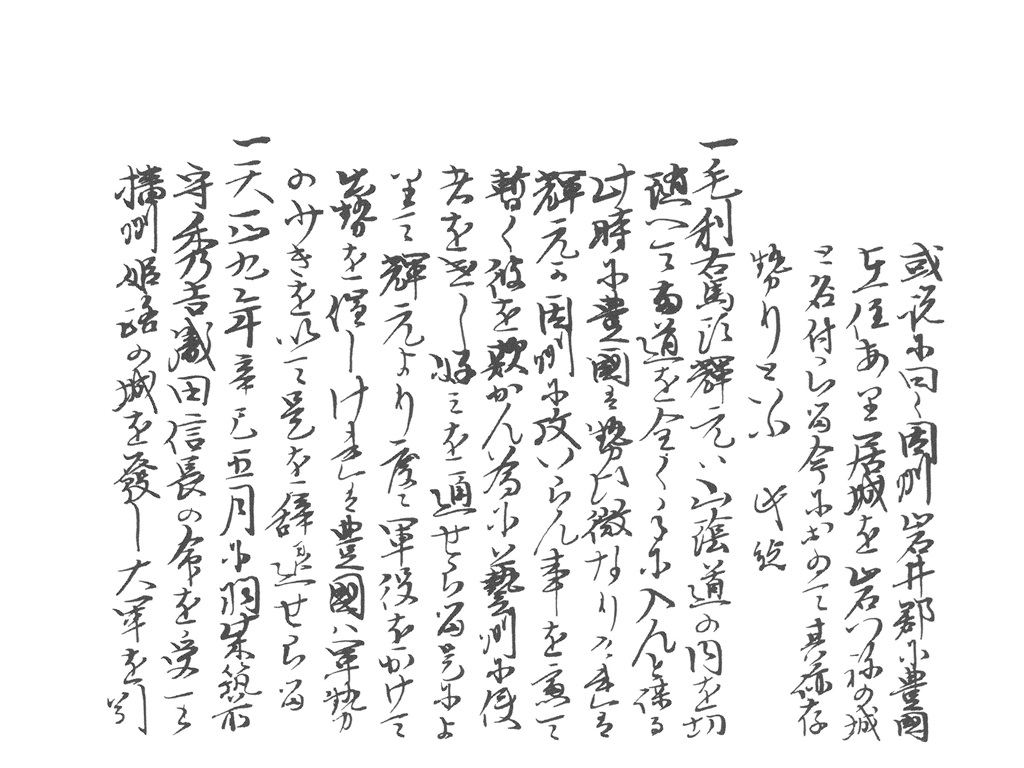 或説に曰く因州岩井郡に豊國
在住あり居城を岩つねの城
と名付られ今において其跡存
せりといふ
一毛利右馬頭輝元ハ山陰道の内を切
随へて道を全く手に入んと謀る
此時に豊國ハ勢ひ微なりけれは
輝元か因州に攻いらん事を慮て
暫く彼を欺かん為に藝州に使
者を通せらる是によ
りて輝元より度々軍役をかけて
出勢を催しけれは豊國ハ軍勢
のなきを以て是を辞退せらる
一天正九年辛巳五月に羽柴筑前
守秀吉織田信長の命を受て
播州姫路の城を發し大軍を引